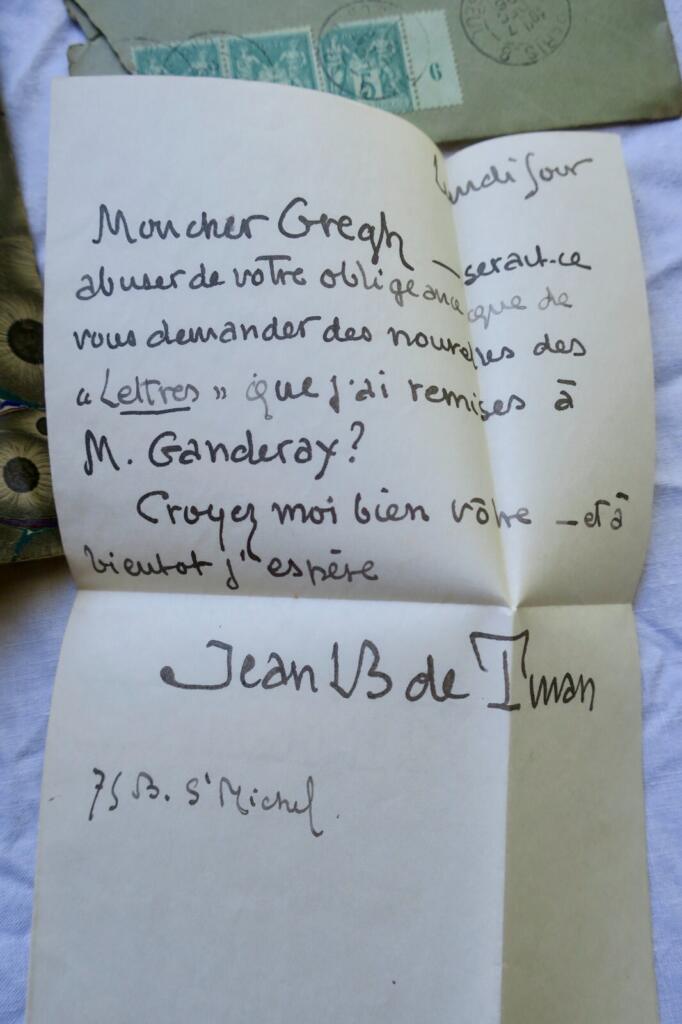 5
6
PARIS
Lundi soir
Mon cher Gregh
abuser de votre obligeance — serait-ce
que de
vous demander des nouvelles des
« Lettres » que j'ai remises à
M. Ganderax?
Croyez moi bien vôtre — et à
bientot j'espère
Jean B de Tinan
75 B. St Michel.